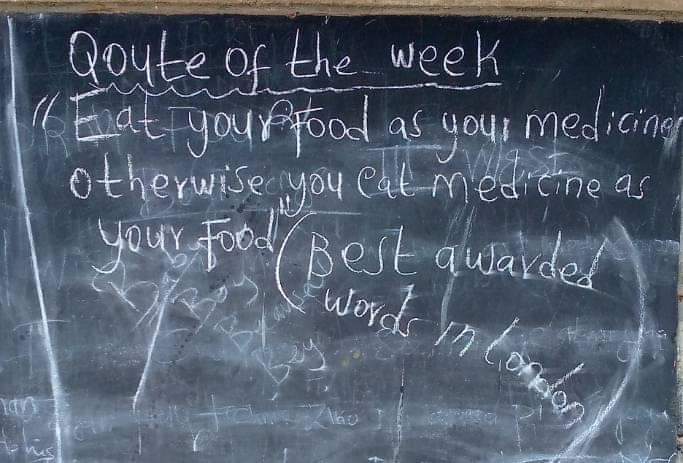 Qoute of the week
"Eat your food as your medicine
otherwise you eat medicine as
your food" (Best awarded
words in London)